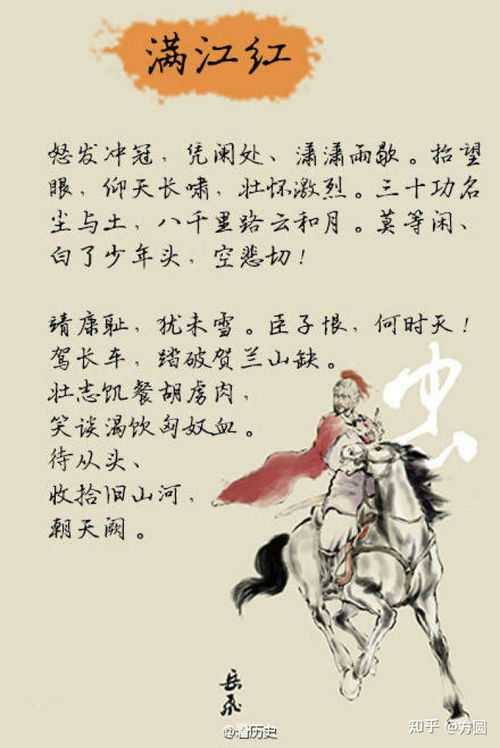 满江红
怒发冲冠，凭阑处、潇潇雨歇。抬望
眼，仰天长啸，壮怀激烈。三十功名
尘与土，八千里路云和月。莫等闲、
白了少年头，空悲切！
靖康耻，犹未雪。臣子恨，何时灭！
驾长车，踏破贺兰山缺。
壮志饥餐胡虏肉，
笑谈渴饮匈奴血。
待从头、
收拾旧山河，
朝天阙。
忠
岳飞
@看历史
知乎 @方圆